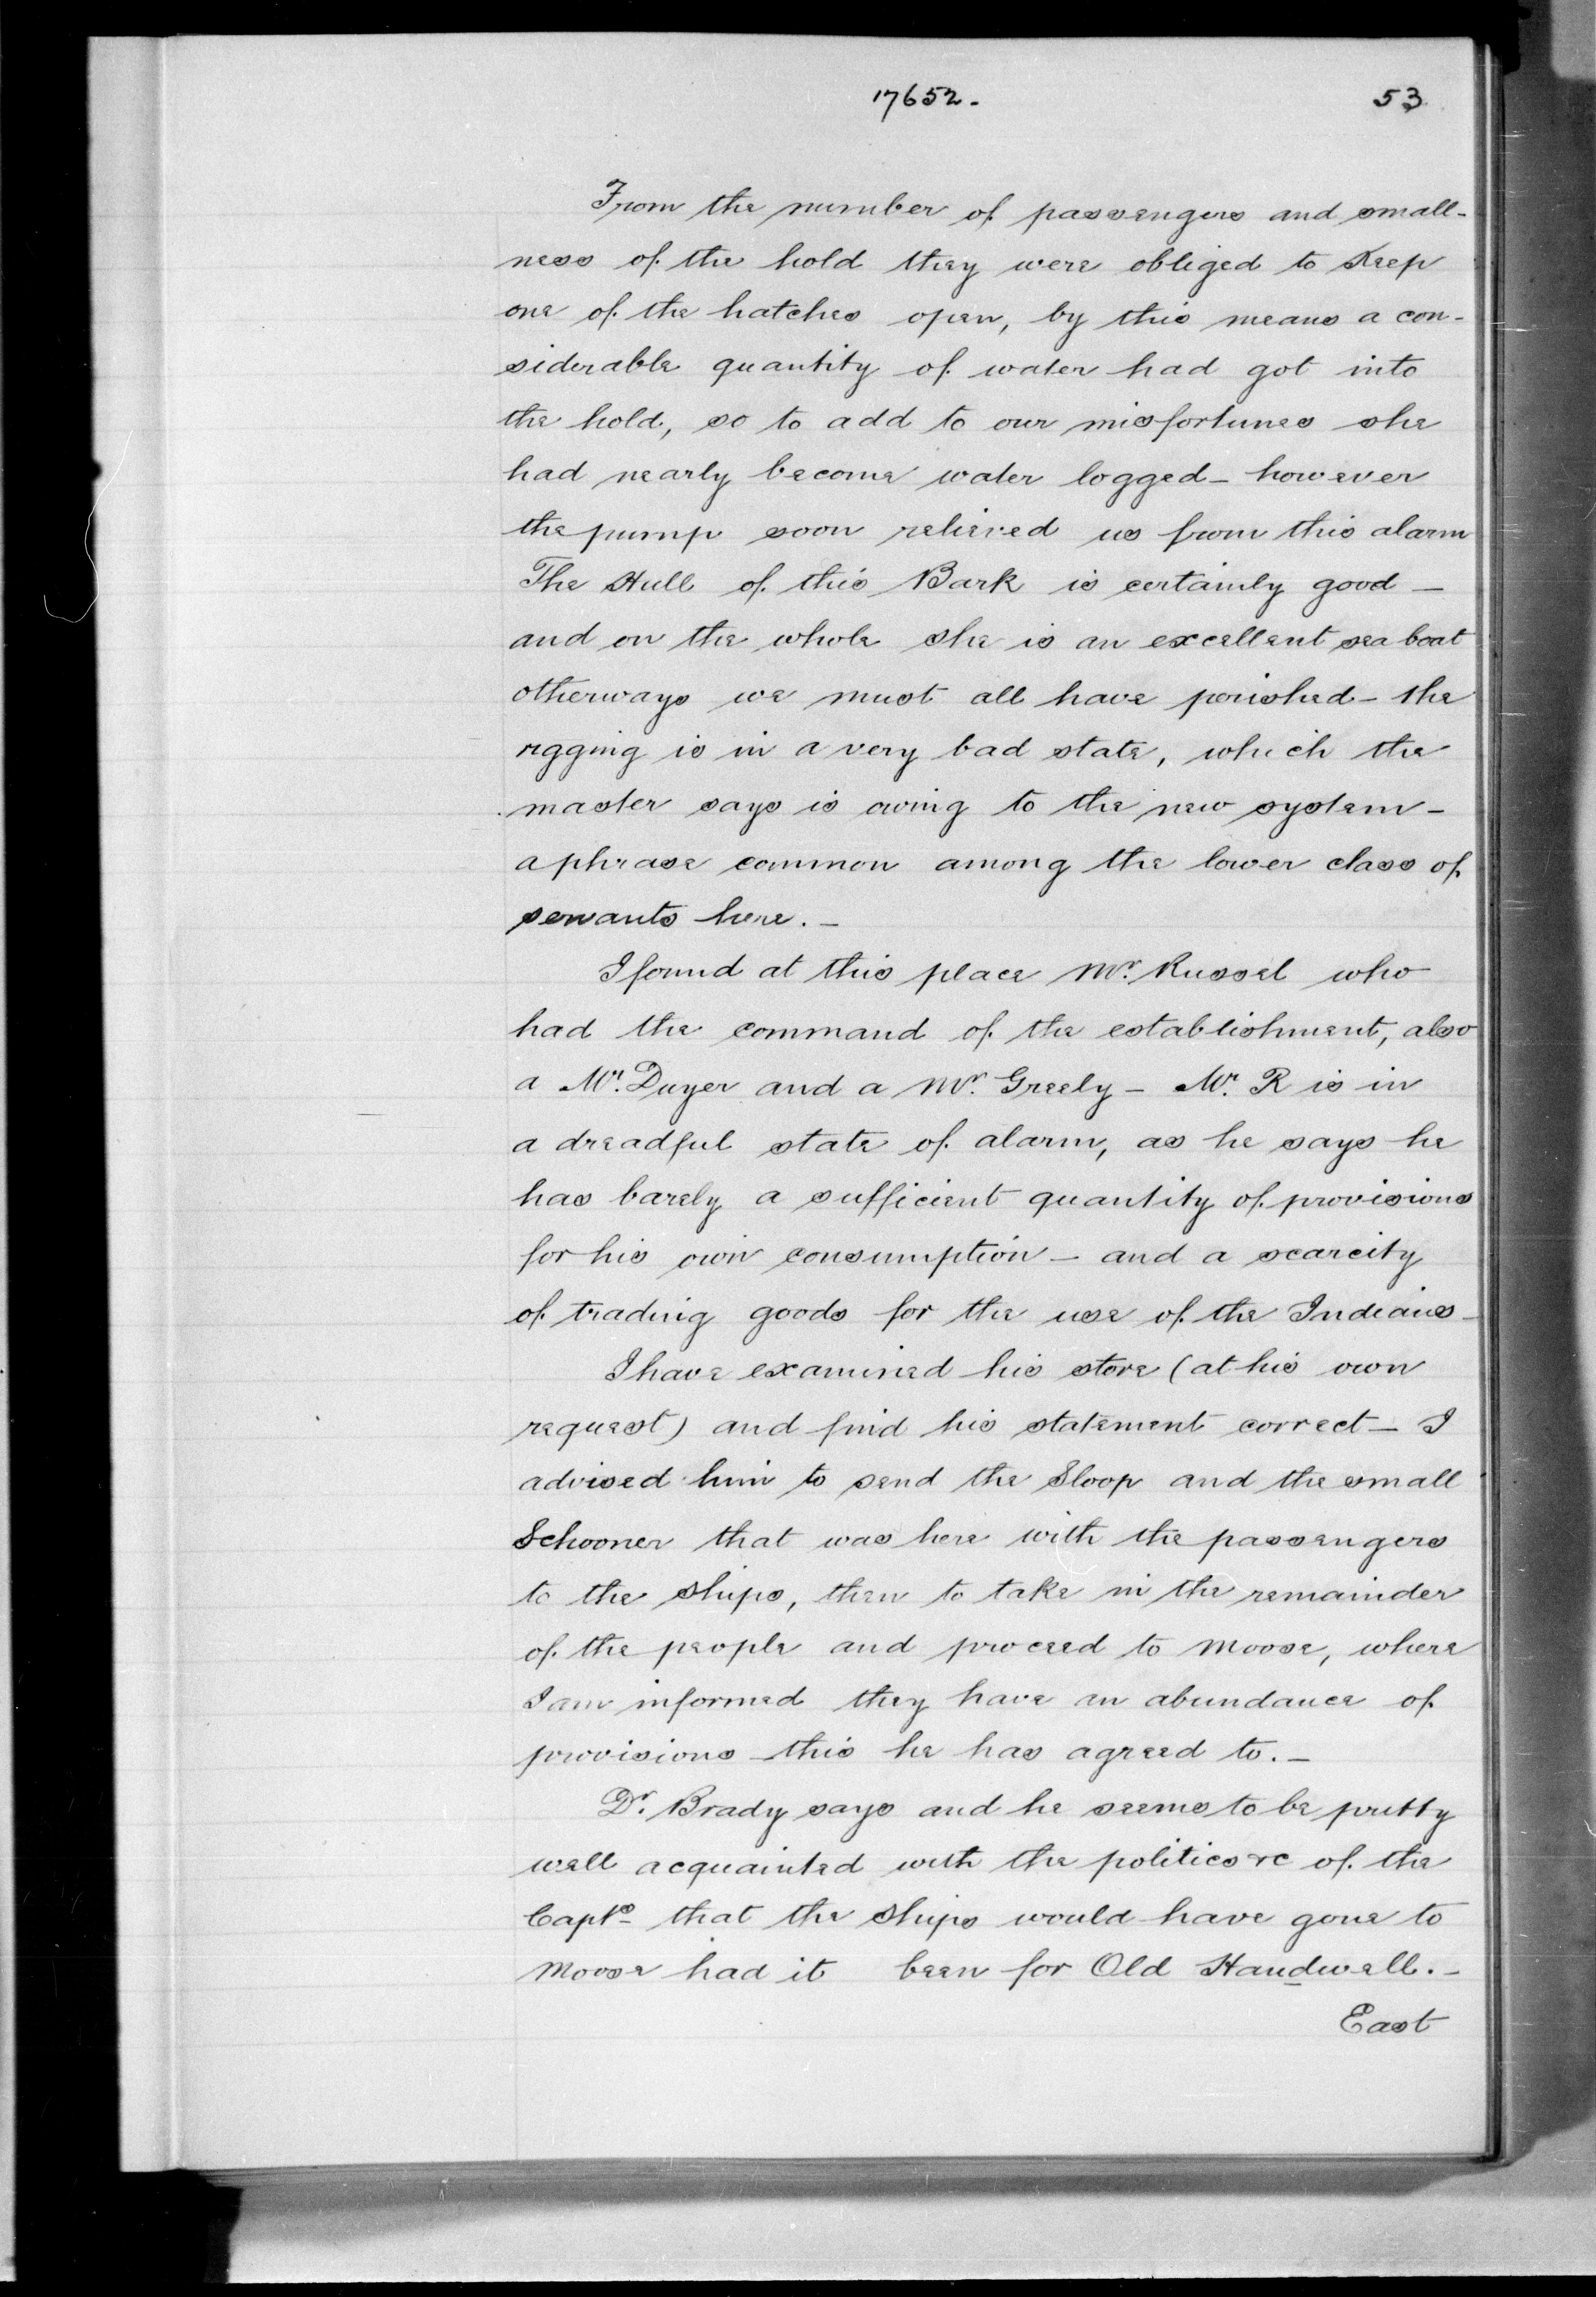 17652.
53
From the number of passengers and small-
ness of the hold they were obliged to Keep
one of the hatches open, by this means a con-
siderable quantity of water had got into
the hold, so to add to our misfortunes she
had nearly become water logged - however
the pump soon relieved us from this alarm
The Hull of this Bark is certainly good -
and on the whole she is an excellent sea boat
otherways we must all have perished - the
rigging is in a very bad state, which the
master says is owing to the new system -
a phrase common among the lower class of
servants here. -
I found at this place Mr. Russel who
had the command of the establishment, also
a Mr. Duyer and a Mr. Greely - Mr. R is in
a dreadful state of alarm, as he says he
has barely a sufficient quantity of provisions
for his own consumption - and a scarcity
of trading goods for the use of the Indians -
I have examined his store (at his own
request) and find his statement correct - I
advised him to send the Sloop and the small
Schooner that was here with the passengers
to the ships, then to take in the remainder
of the people and proceed to Moose, where
I am informed they have an abundance of
provisions - this he has agreed to. -
Dr. Brady says and he seems to be pretty
well acquainted with the politics &c of the
Capts that the ships would have gone to
Moose had it been for Old Handwell. -
East